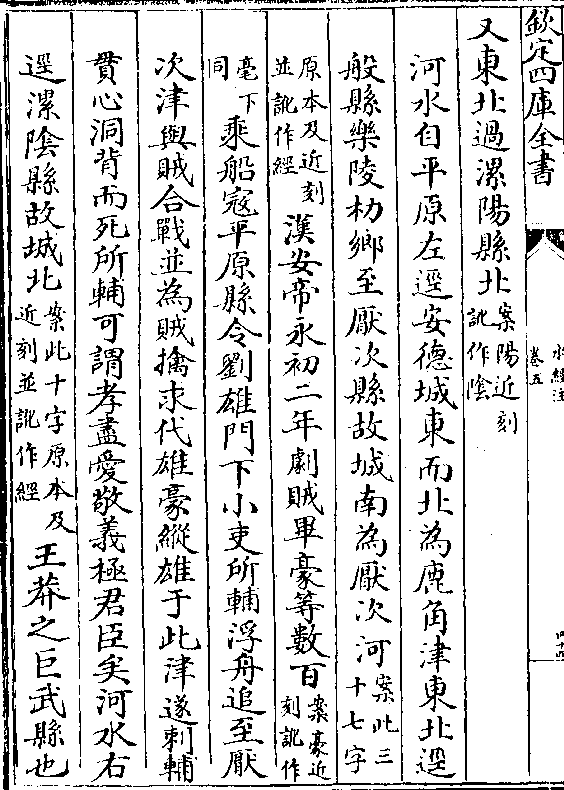 欽定四庫全書
水經注
卷五
四十四
又東北過漯陽縣北案陽近刻訛作陰
河水自平原左逕安德城東而北為鹿角津東北逕
般縣樂陵朸鄉至厭次縣故城南為厭次河案此三十七字
原本及近刻並訛作經漢安帝永初二年劇賊畢豪等數百案豪近刻訛作
毫下同乘船寇平原縣令劉雄門下小吏所輔浮舟追至厭
次津與賊合戰並為賊擒求代雄豪縱雄于此津遂刺輔
貫心洞背而死所輔可謂孝盡愛敬義極君臣矣河水右
逕漯陰縣故城北案此十字原本及近刻並訛作經王莽之巨武縣也